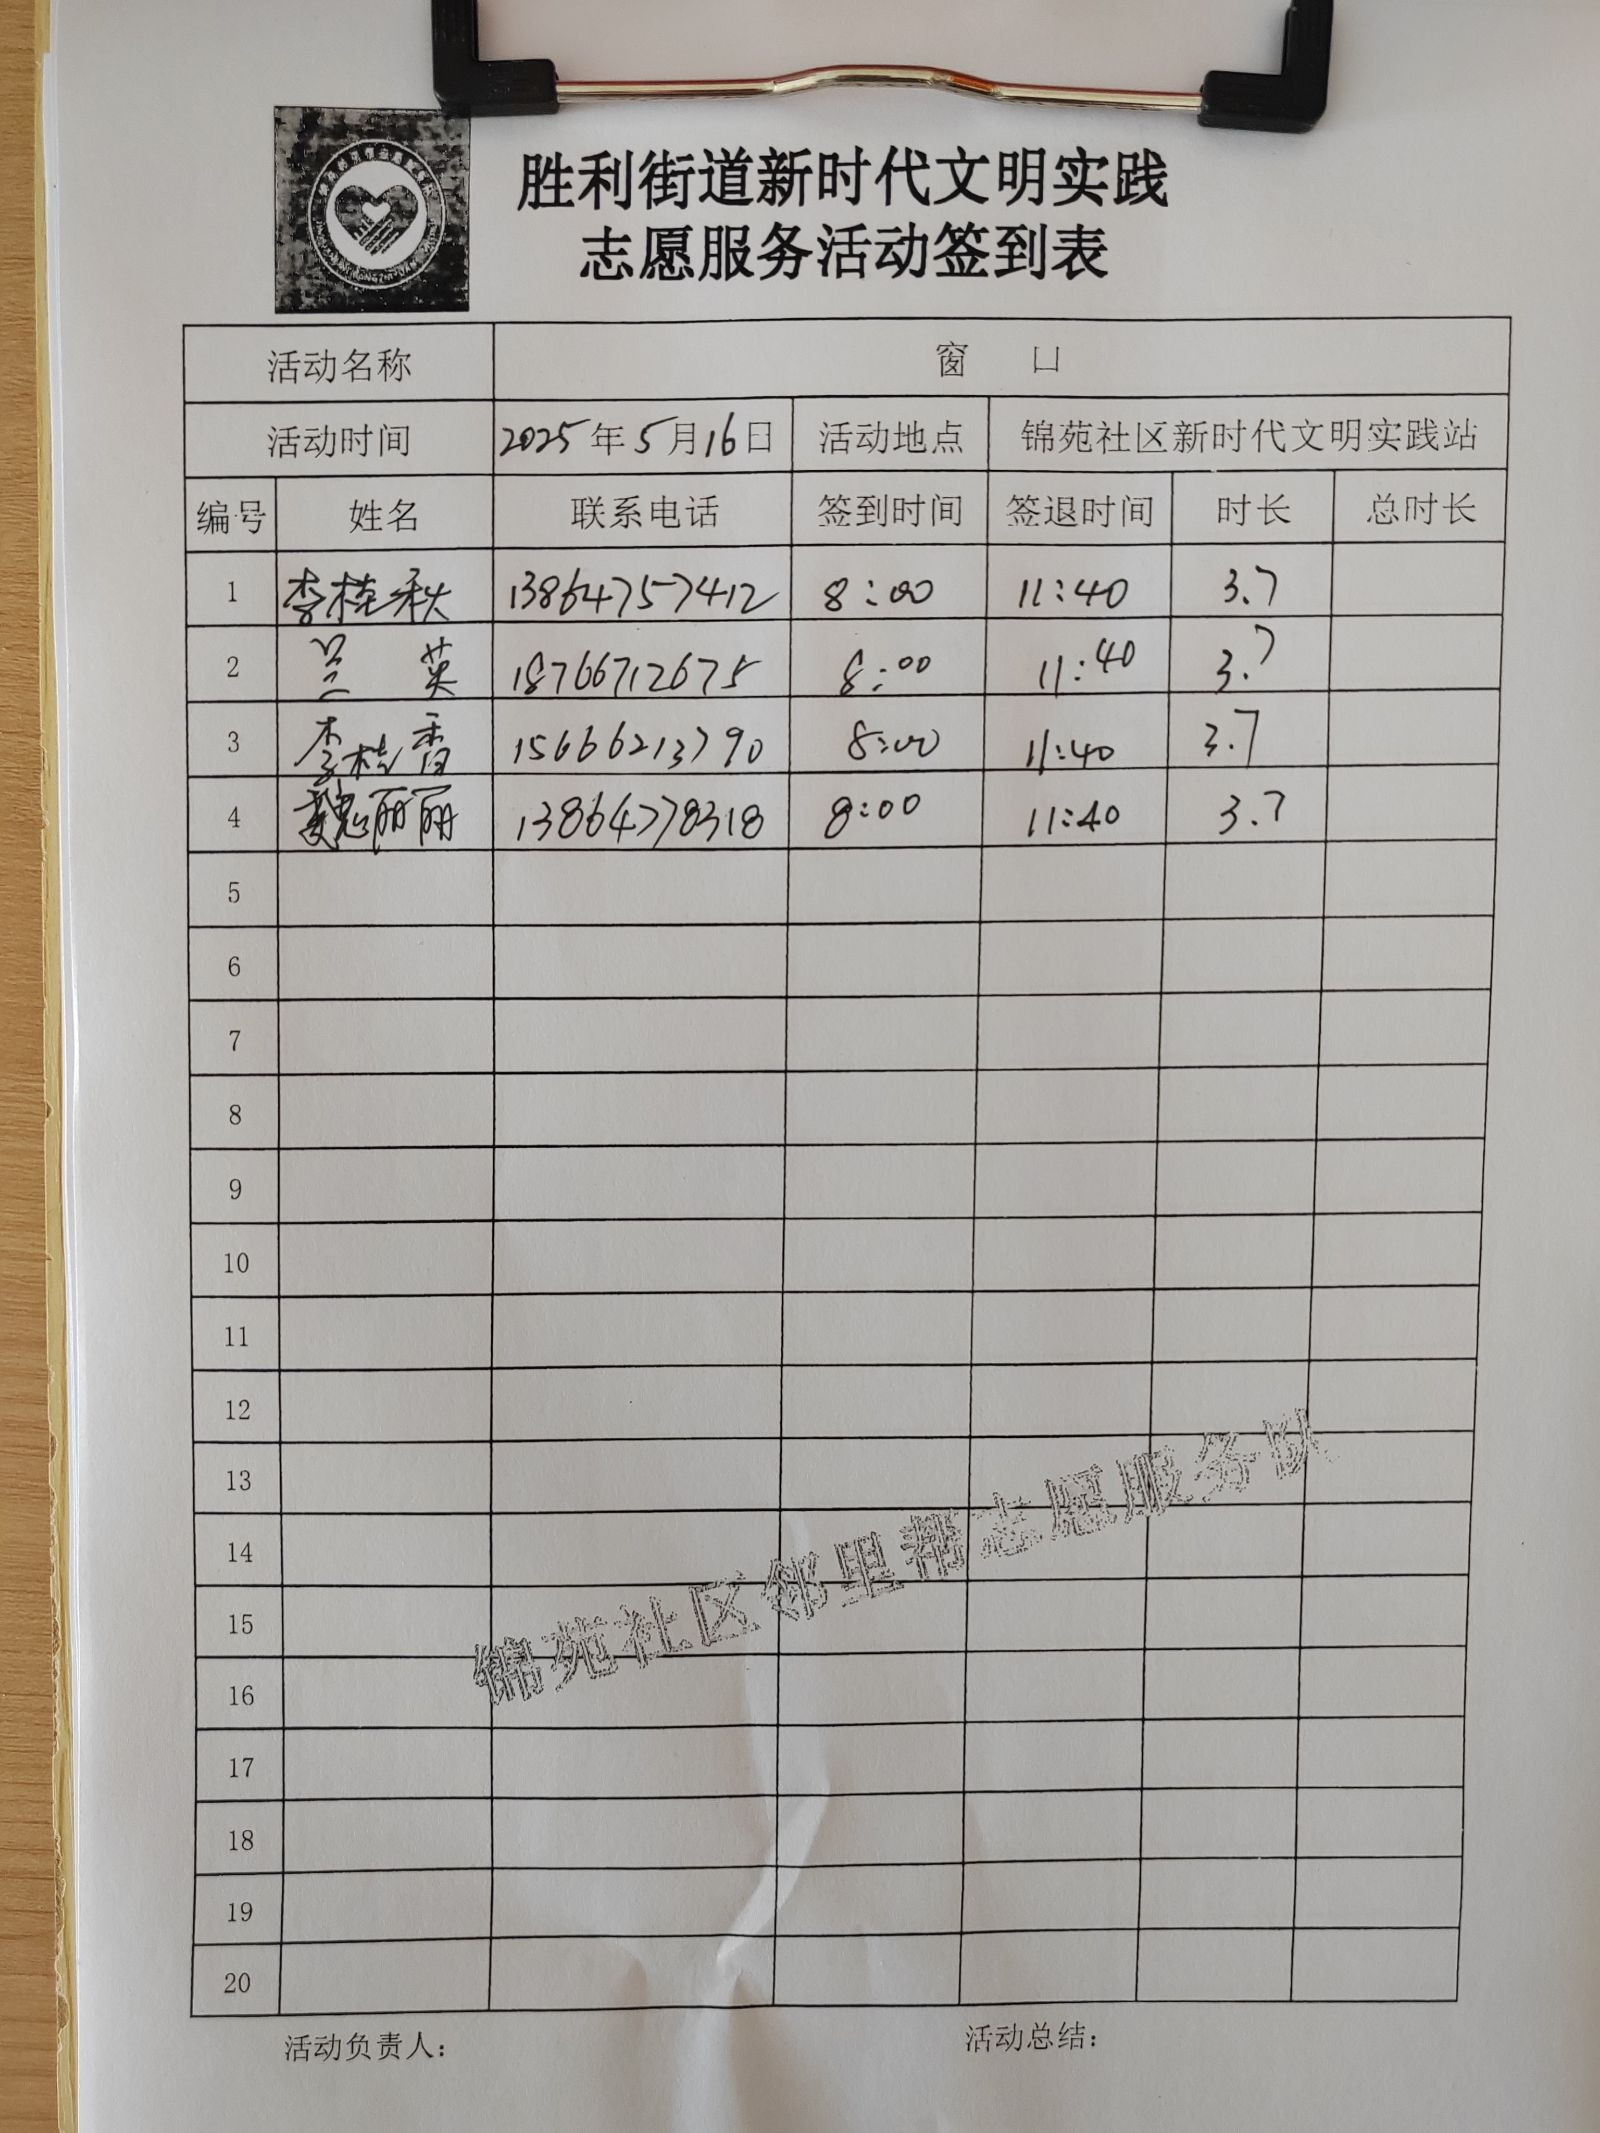 胜利街道新时代文明实践
志愿服务活动签到表
活动名称 窗 口
活动时间 2025年5月16日 活动地点 锦苑社区新时代文明实践站
编号 姓名 联系电话 签到时间 签退时间 时长 总时长
1 李桂秋 13864757412 8:00 11:40 3.7
2 兰英 18766712675 8:00 11:40 3.7
3 李桂香 15666213790 8:00 11:40 3.7
4 魏丽丽 13864778318 8:00 11:40 3.7
5
6
7
8
9
10
11
12
13
14
15
16
17
18
19
20
锦苑社区邻里帮志愿服务队
活动负责人: 活动总结: